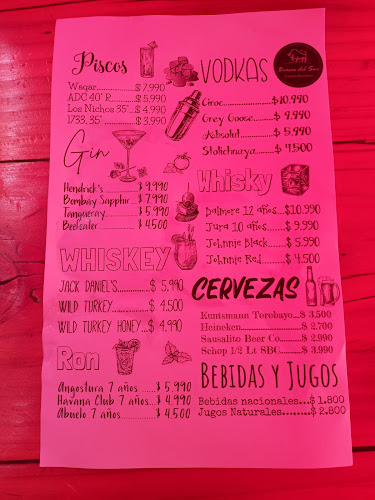 Piscos
Waqar..............$7.990
ADC 40° R........$5.990
Los Nichos 35°...$4.990
1733, 35°..........$3.990
Gin
Hendrick's..........$9.990
Bombay Sapphir...$7.990
Tangueray..........$5.990
Beefeater..........$4.500
WHISKEY
JACK DANIEL'S.........$ 5.990
WILD TURKEY..........$ 4.500
WILD TURKEY HONEY...$ 4.990
Ron
Angostura 7 años.....$5.990
Havana Club 7 años...$4.990
Abuelo 7 años........$4.500
VODKAS
Ciroc..............$10.990
Grey Goose.......$ 9.990
Absolut...........$ 5.990
Stolichnaya.......$ 4.500
Whisky
Dalmore 12 años...$10.990
Jura 10 años.......$ 9.990
Johnnie Black......$ 5.990
Johnnie Red.......$ 4.500
CERVEZAS
Kuntsmann Torobayo...$ 3.500
Heineken...............$ 2.700
Sausalito Beer Co.......$ 2.990
Schop 1/2 Lt SBC........$ 3.990
BEBIDAS Y JUGOS
Bebidas nacionales...$ 1.800
Jugos Naturales.......$ 2.800